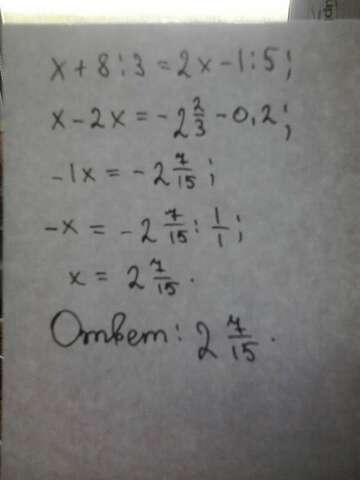 x + 8 : 3 = 2x - 1 : 5 ;
x - 2x = - 2 2/3 - 0,2 ;
- 1x = - 2 7/15 ;
- x = - 2 7/15 : 1/1 ;
x = 2 7/15 .
Ответ : 2 7/15 .